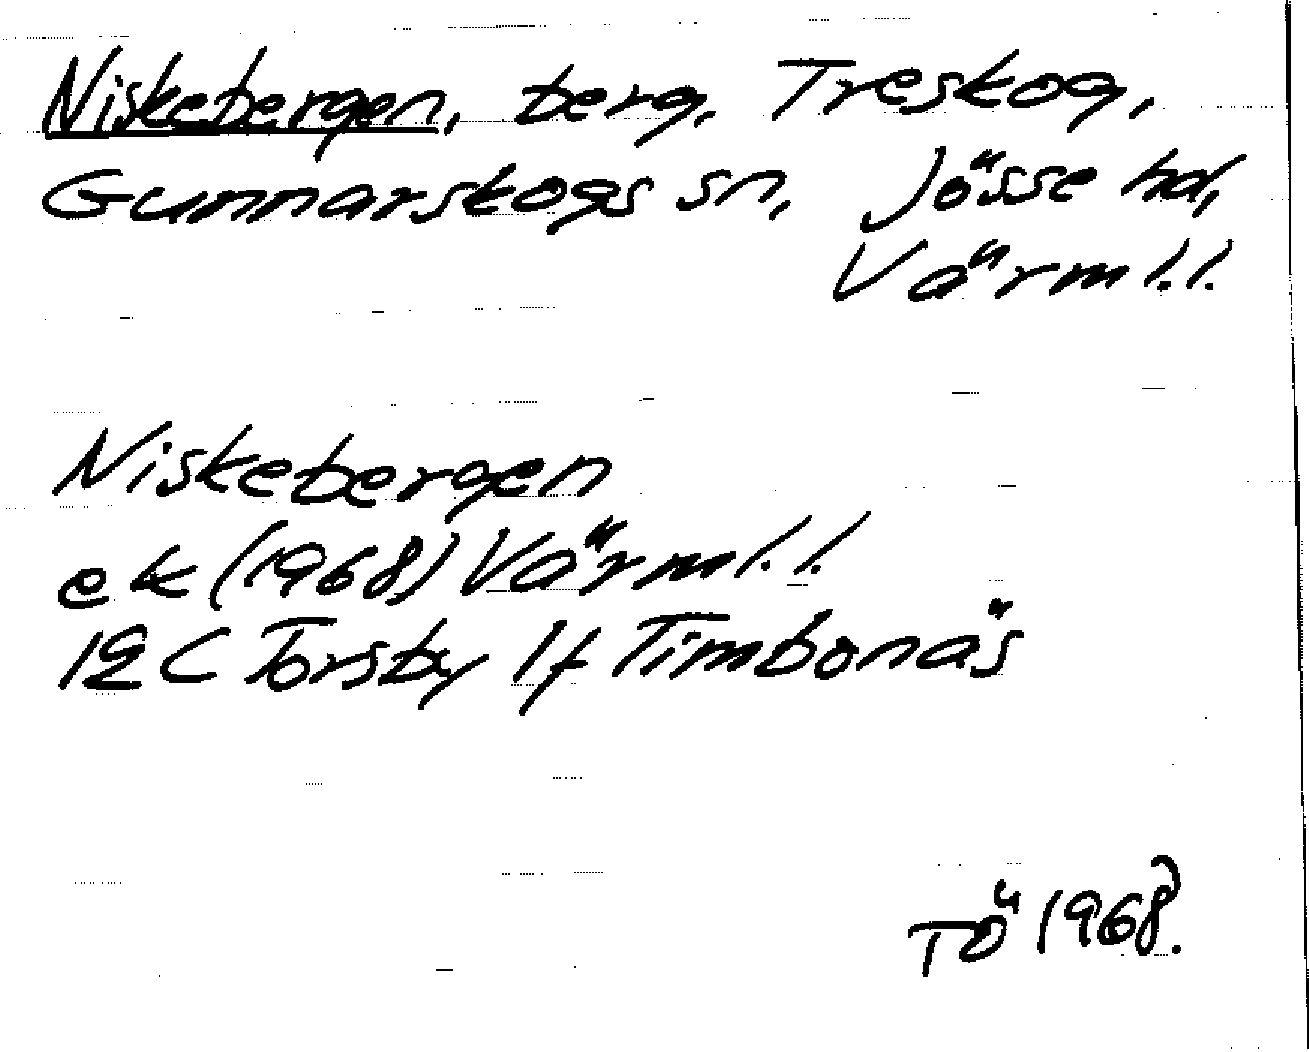 Niskebergen, berg, Treskog,
Gunnarskogs sn, Jösse hd,
Värml.l.
Niskebergen
ek (1968) Värml.l.
12 C Torsby 1f Timbonäs
TÖ 1968.